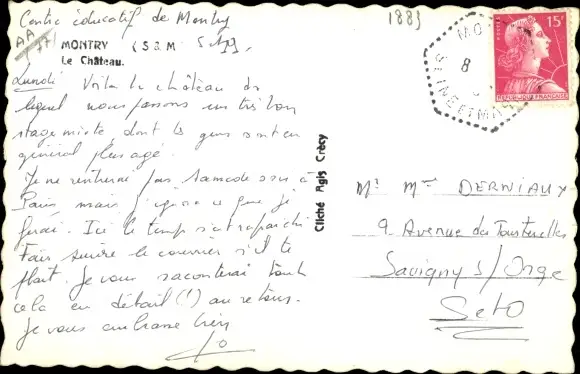 Centre éducatif de Montry
1883
AA
77
MONTRY (S & M
Le Château.
Lundi Voilà le château ds
lequel nous passons un très bon
stage mixte, dont ls gens sont en
général plus âgé.
Je ne rentrerai pas samedi soir à
Paris, mais j'ignore ce que je
ferai. Ici le temps s'est rafraîchi
Fais suivre le courrier s'il te
plait. Je vous raconterai tout
cela en détail (!) au retour.
Je vous embrasse bien
Jo
Cliché Agis Crécy
MO
8
SEINE ET MA
POSTES
15F
REPUBLIQUE FRANÇAISE
Mr Mme DERNIAUX
9 Avenue des Tourterelles
Savigny s/ Orge
S et O